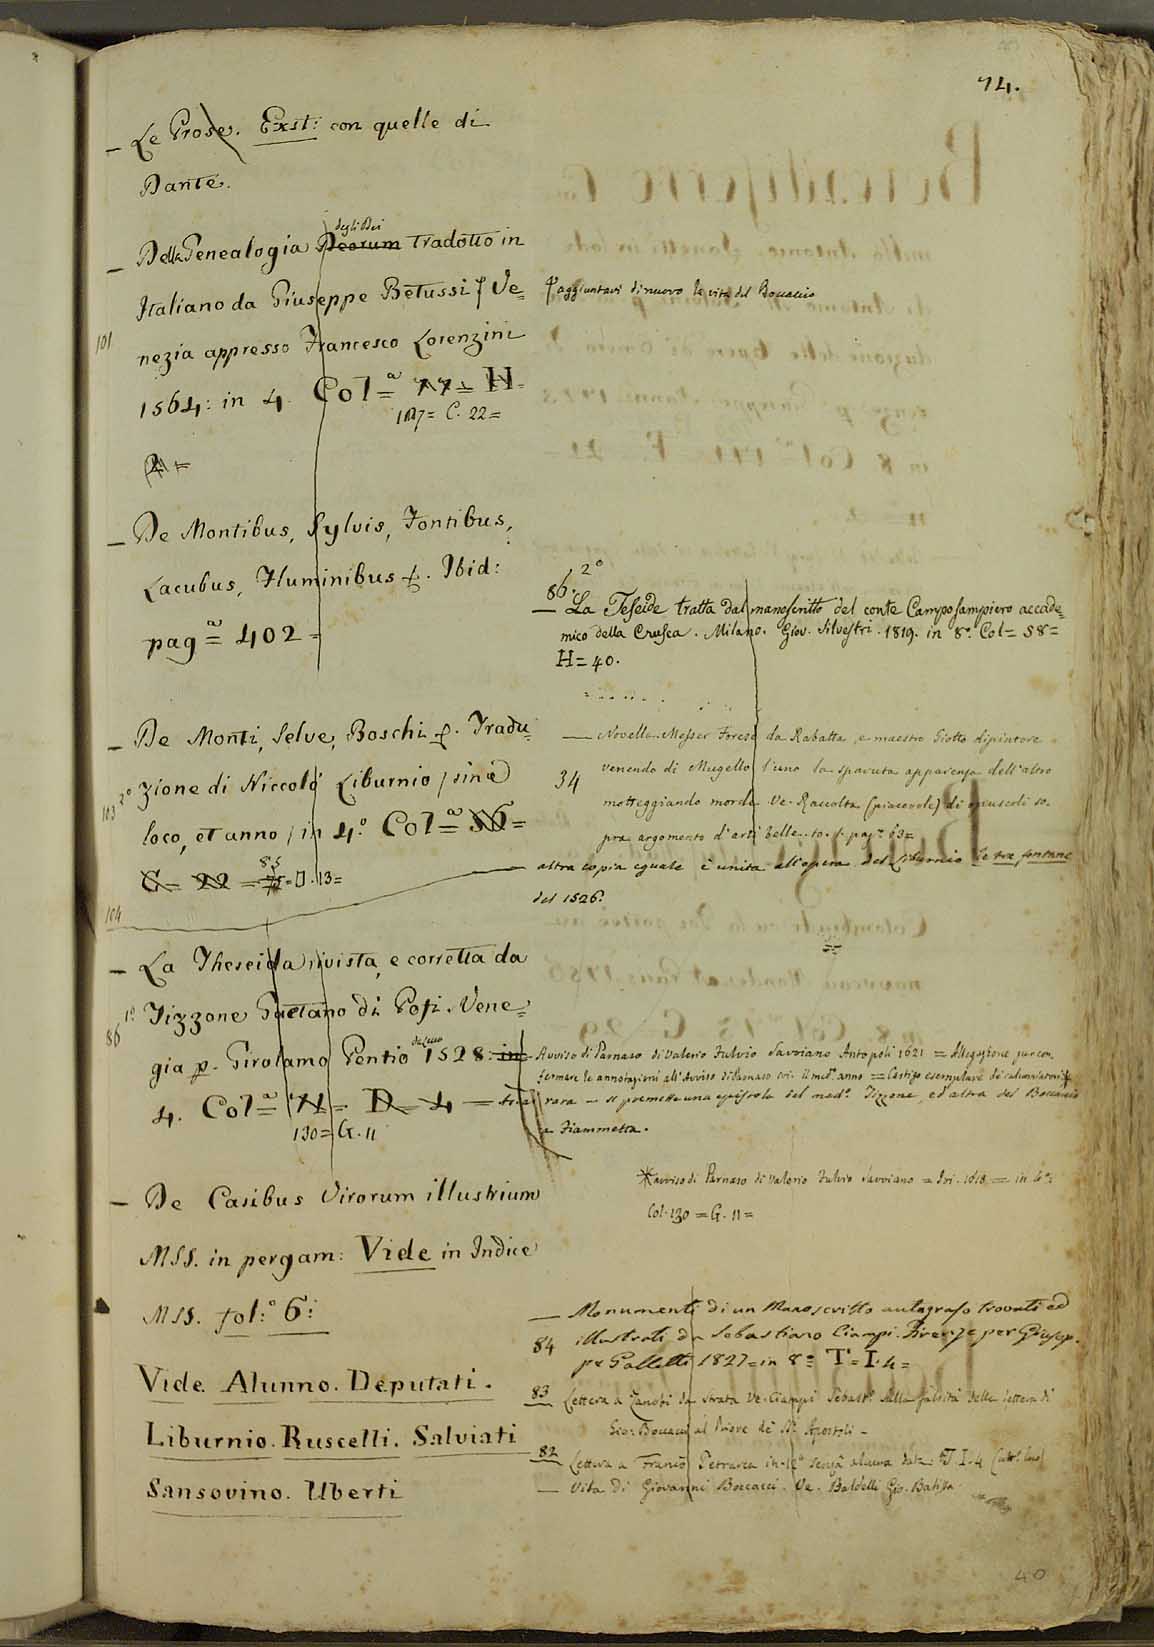 74.
— Le Prose. Exst: con quelle di
Dante.
degli Dei
— Della Genealogia Deorum tradotto in
Italiano da Giuseppe Betussi / Ve=
/ aggiuntavi di nuovo la vita del Boccaccio
101 nezia appresso Francesco Lorenzini
1564: in 4. Col=a 77= H=
127= C. 22=
2=
— De Montibus, Sylvis, Fontibus,
Lacubus, Fluminibus &. Ibid:
pag=a 402=
— De Monti, Selve, Boschi &. Tradu=
103 2o zione di Niccolò Liburnio / sine
loco, et anno / in 4.o Col=a 36=
85
C= 22 = 75 = D. 13=
altra copia eguale è unita all'opera del Liburnio le tre fontane
del 1526.
104
— La Theseida rivista, e corretta da
86 1o Tizzone Gaetano di Pofi. Vene=
gia p. Girolamo Pentio 1528: in
4. Col=a 71= D 4 =
130= G. 11
— De Casibus Virorum illustrium
MSS. in pergam: Vide in Indice
MSS. fol:o 6:
Vide. Alunno. Deputati.
Liburnio. Ruscelli. Salviati
Sansovino. Uberti
86. 2o
— La Teseide tratta dal manoscritto del conte Camposampiero accade=
mico della Crusca. Milano. Giov. Silvestri. 1819. in 8o. Col= 58=
H= 40.
— Novella Messer Forese da Rabatta, e maestro Giotto dipintore
34 venendo di Mugello l'uno la sparuta apparenza dell'altro
motteggiando morde. Ve. Raccolta (piacevole) di opuscoli so.
pra argomento d'arti belle. to. 1. pag.a 63=
Avviso di Parnaso di Valerio Fulvio Savoiano Antopoli 1621 = Allegazione per con.
fermare le annotazioni all'Avviso di Parnaso ivi. il med.o anno = Castigo esemplare de calunniatori *
rara — si premette una epistola del med.o Tizzone, ed altra del Boccaccio
a Fiammetta.
* avviso di Parnaso di Valerio Fulvio Savoiano = Ivi. 1618 = in 4o:
Col. 130 = G. 11=
— Monumenti di un Manoscritto autografo trovati ed
84 illustrati da Sebastiano Ciampi. Firenze per Giusep.
pe Galletti 1827= in 8o= T= I. 4=
83 Lettera a Zanobi da Strata Ve. Ciampi Sebast.o Sulla falsità della lettera di
Gio: Boccacci al Priore de' SS. Apostoli —
82 Lettera a Franco Petrarca in 12o senza alcuna data T. I. 4
— Vita di Giovanni Boccacci. Ve. Baldelli Gio. Batista
40